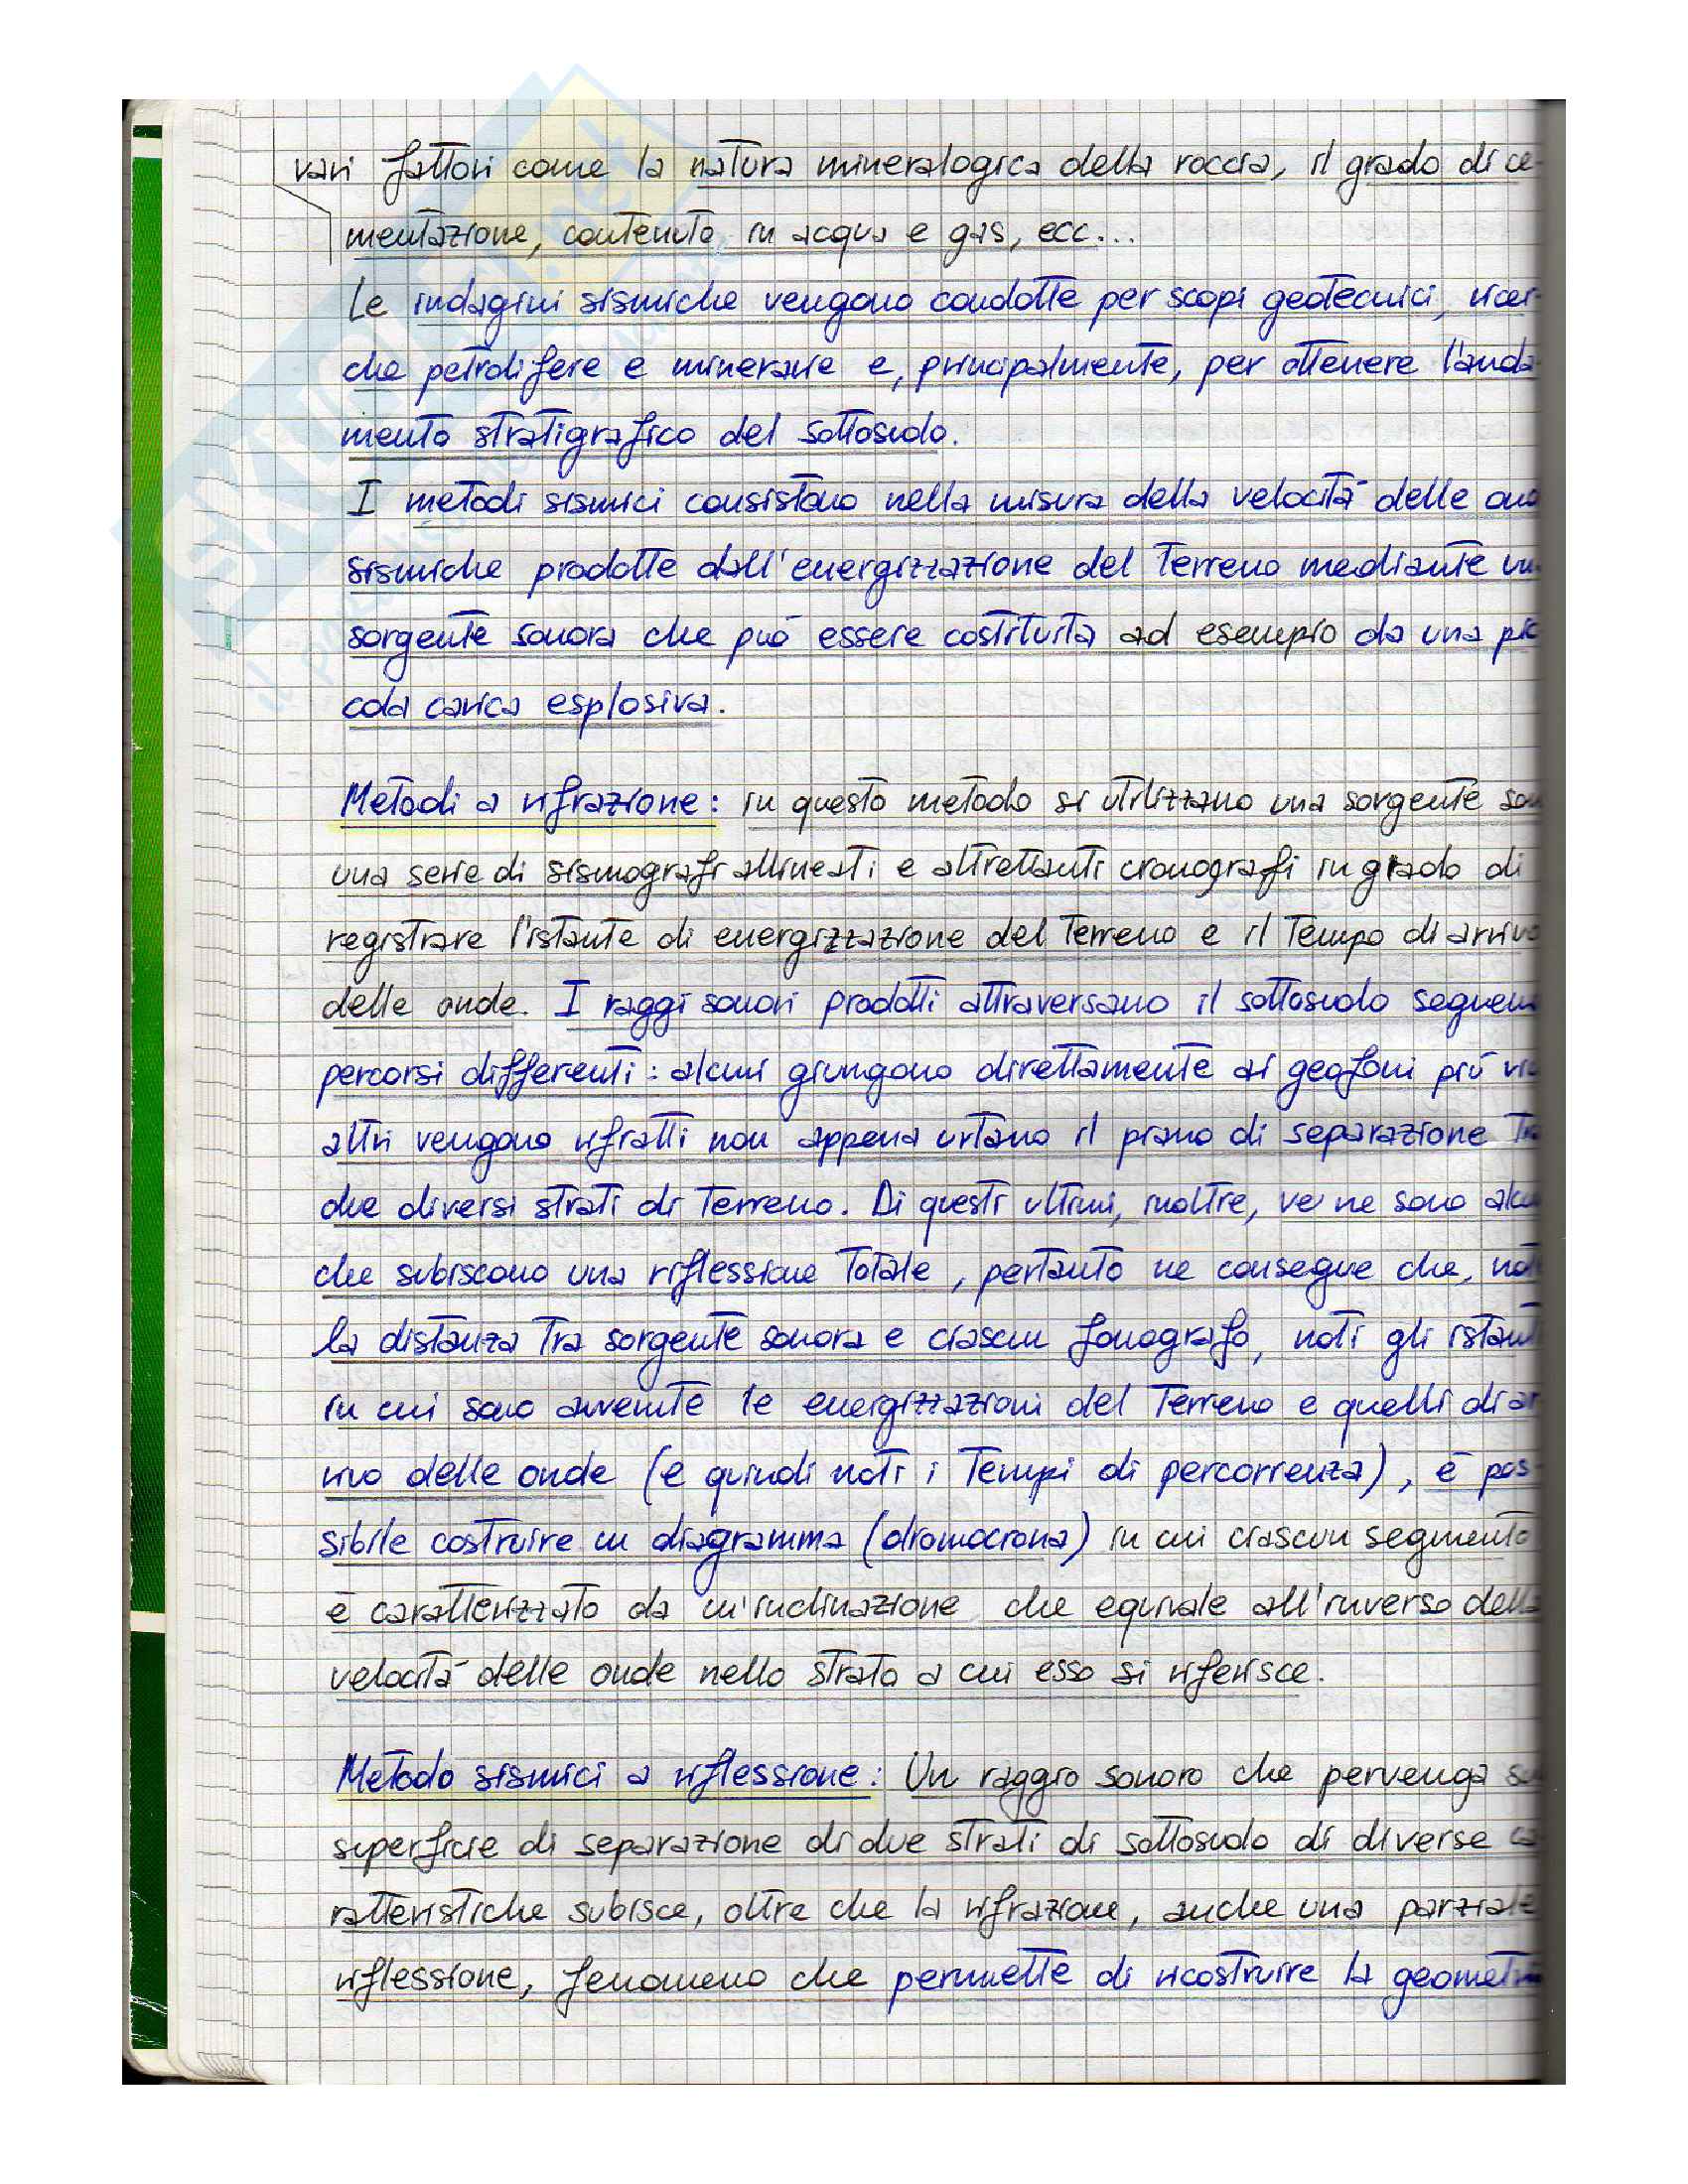 vari fattori come la natura mineralogica della roccia, il grado di ce-
mentazione, contenuto in acqua e gas, ecc...
Le indagini sismiche vengono condotte per scopi geotecnici, ricer-
che petrolifere e minerarie e, principalmente, per ottenere l'anda-
mento stratigrafico del sottosuolo.
I metodi sismici consistono nella misura della velocità delle
sismiche prodotte dall'energizzazione del terreno mediante
sorgente sonora che può essere costituita ad esempio da una pic
cola carica esplosiva.
Metodi a rifrazione: in questo metodo si utilizzano una sorgente
una serie di sismografi allineati e altrettanti cronografi in grado di
registrare l'istante di energizzazione del terreno e il tempo di arrivo
delle onde. I raggi sonori prodotti attraversano il sottosuolo
percorsi differenti: alcuni giungono direttamente ai geofoni più
altri vengono rifratti non appena urtano il piano di separazione tra
due diversi strati di terreno. Di questi ultimi, inoltre, ve ne sono
che subiscono una riflessione totale, pertanto ne consegue che,
la distanza tra sorgente sonora e ciascun fonografo, noti gli
in cui sono avvenute le energizzazioni del terreno e quelli di ar
rivo delle onde (e quindi noti i tempi di percorrenza), è pos-
sibile costruire un diagramma (dromocrona) in cui ciascun segmento
è caratterizzato da un'inclinazione che equivale all'inverso della
velocità delle onde nello strato a cui esso si riferisce.
Metodo sismici a riflessione: Un raggio sonoro che pervenga
superficie di separazione di due strati di sottosuolo di diverse ca
ratteristiche subisce, oltre che la rifrazione, anche una parziale
riflessione, fenomeno che permette di ricostruire la
SKUOLA.net